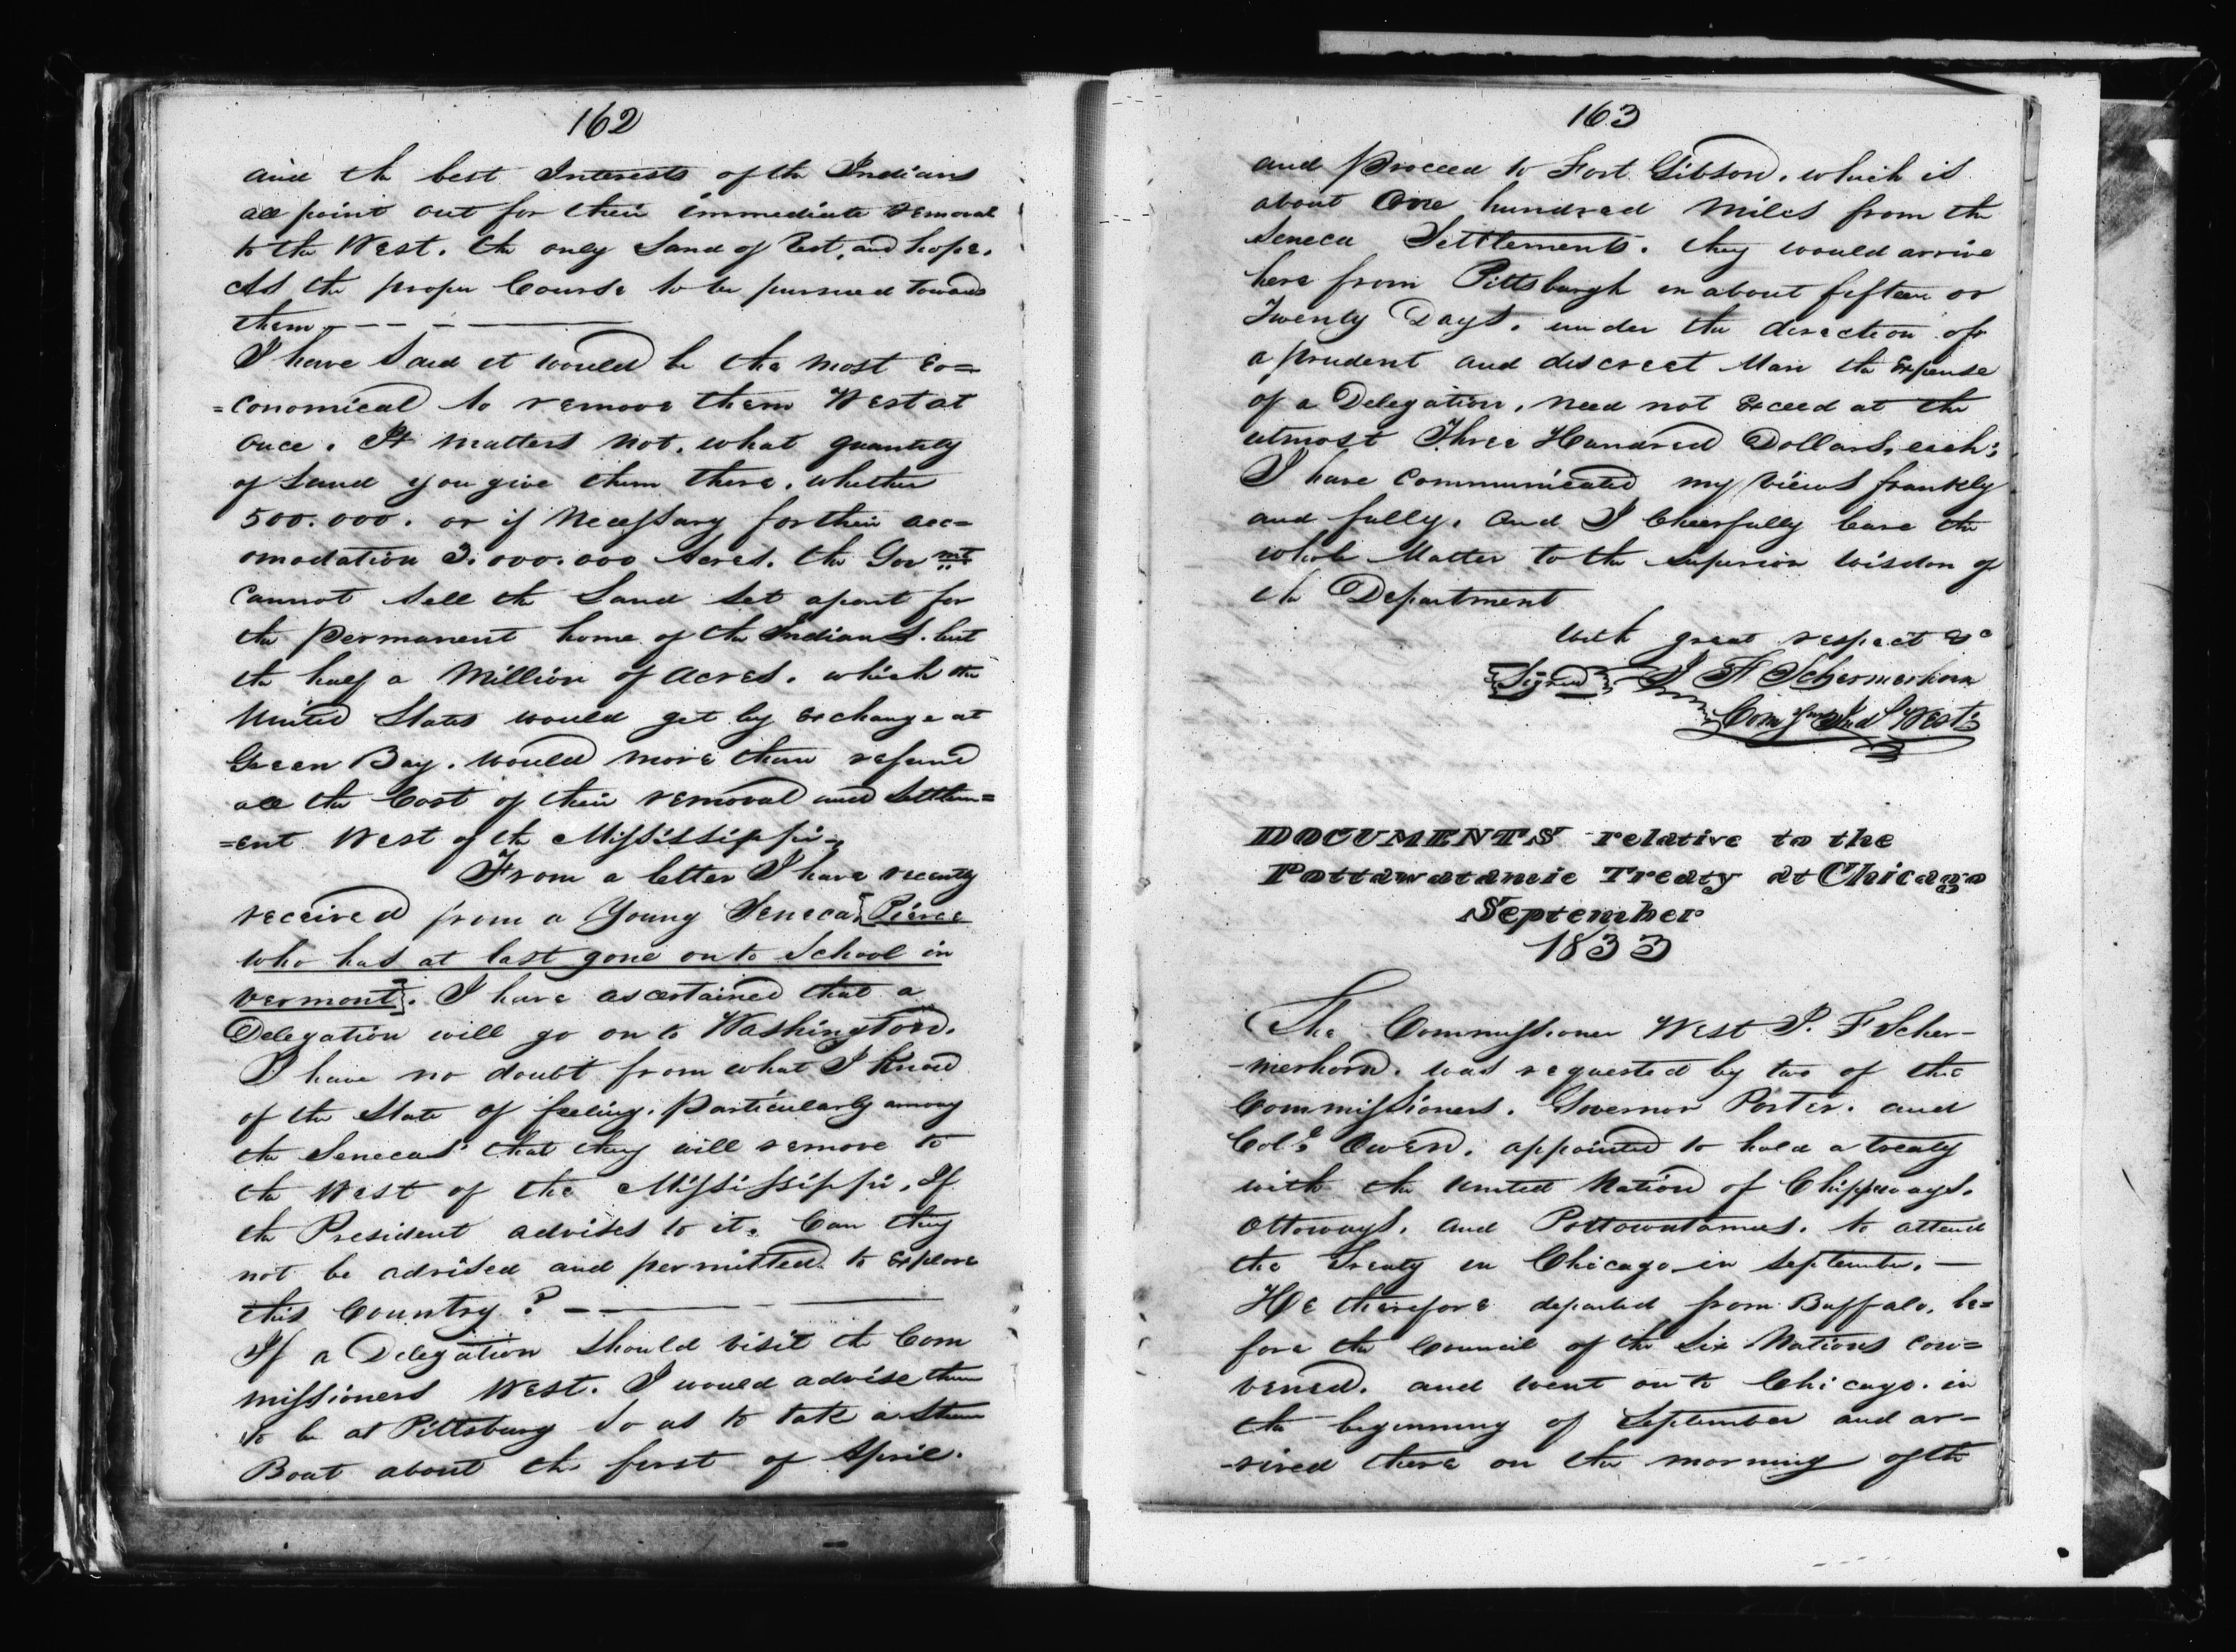 162
and the best Interests of the Indians
all point out for their immediate removal
to the West. the only Land of Rest, and hope.
As the proper Course to be pursued towards
them. — — — —
I have said it would be the most Eco=
=conomical to remove them West at
once. It matters not, what quantity
of Land you give them there, whether
500.000. or if Necessary for their acc=
omodation 3.000.000 Acres. the Gov mt
Cannot sell the Land set apart for
the permanent home of the Indians. but
the half a Million of acres. which the
United States would get by Exchange at
Green Bay. would more than refund
all the Cost of their removal and Settlem=
=ent West of the Mississippi -
From a letter I have recently
received from a Young Seneca [Pierce
who has at last gone on to School in
Vermont]. I have ascertained that a
Delegation will go on to Washington.
I have no doubt from what I Know
of the State of feeling. particularly among
the Senecas that they will remove to
the West of the Mississippi, If
the President advises to it. Can they
not be advised and permitted to Explore
this Country? — — —
If a Delegation should visit the Com
missioners West. I would advise them
to be at Pittsburg so as to take a Steam
Boat about the first of April.
163
and proceed to Fort Gibson. which is
about One hundred Miles from the
Seneca Settlements. they would arrive
here from Pittsburgh in about fifteen or
Twenty Days. under the direction of
a prudent and discreet Man the Expense
of a Delegation, need not Exceed at the
utmost Three Hundred Dollars, each;
I have Communicated my Views frankly
and fully. and I Cheerfully leave the
whole Matter to the superior Wisdom of
the Department
With great respect &c
[Signed] J F Schermerhorn
Com Ind West
DOCUMENTS relative to the
Pottawatamie Treaty at Chicago
September
1833
The Commissioner West J. F Scher-
-merhorn. was requested by two of the
Commissioners. Governor Porter. and
Col. Owen. appointed to hold a treaty
with the United Nation of Chippeways.
Ottoways. and Pottowatamies. to attend
the Treaty in Chicago in September. —
He therefore departed from Buffalo, be=
fore the Council of the Six Nations con=
vened. and went on to Chicago. in
the beginning of September and ar-
-rived there on the morning of the